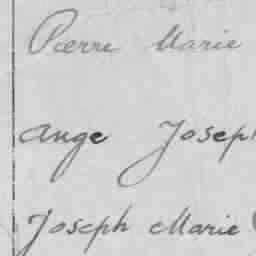 Pierre Marie
Ange Joseph
Joseph Marie